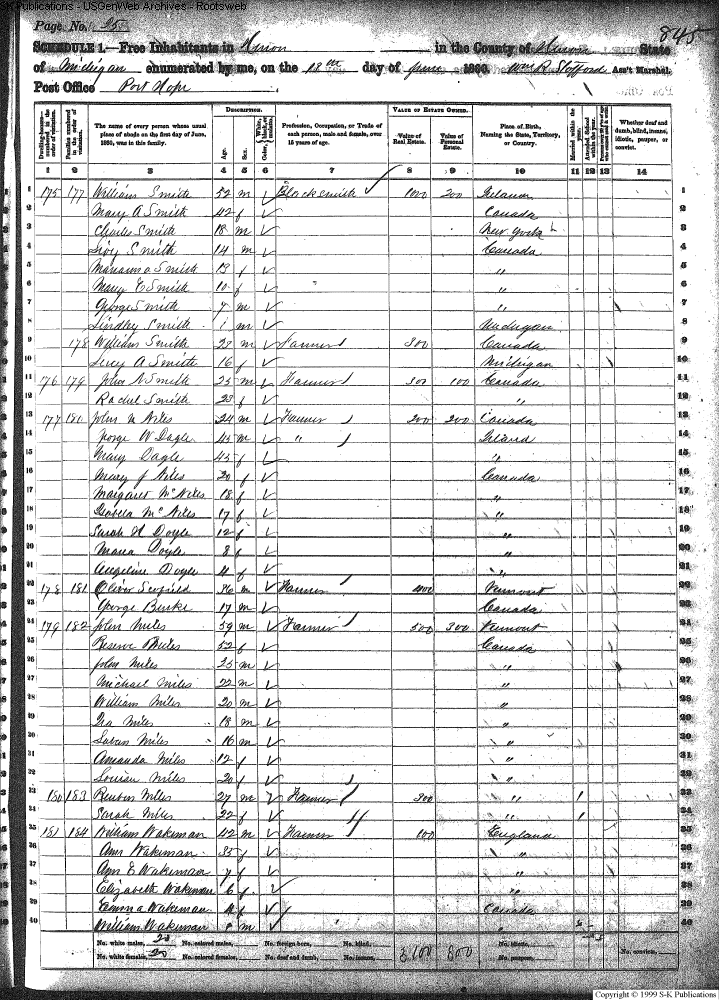 S-K Publications - USGenWeb Archives - Rootsweb
845
Page No. 25
SCHEDULE 1.—Free Inhabitants in Huron in the County of Huron State
of Michigan enumerated by me, on the 18th day of June 1860. Wm R. Stafford Ass't Marshal.
Post Office Port Hope
Dwelling-houses—numbered in the order of visitation.
Families numbered in the order of visitation.
The name of every person whose usual place of abode on the first day of June, 1860, was in this family.
DESCRIPTION.
Age.
Sex.
Profession, Occupation, or Trade of each person, male and female, over 15 years of age.
VALUE OF ESTATE OWNED.
Value of Real Estate.
Value of Personal Estate.
Place of Birth, Naming the State, Territory, or Country.
Married within the year.
Attended School within the year.
Whether deaf and dumb, blind, insane, idiotic, pauper, or convict.
1 2 3 4 5 6 7 8 9 10 11 12 13 14
1 175 177 William Smith 52 m Blacksmith 1000 200 Ireland 1
2 Mary A Smith 42 f Canada 2
3 Charles Smith 18 m New York 3
4 Smith 14 m Canada 4
5 Smith 13 f " 5
6 Mary E Smith 10 f " 6
7 George Smith 7 m " 7
8 Lindley Smith 1 m Michigan 8
9 178 William Smith 23 m Farmer 300 Canada 9
10 Lucy A Smith 16 f Michigan 10
11 176 179 John Smith 25 m Farmer 300 100 Canada 11
12 Rachel Smith 23 f " 12
13 177 180 John Niles 24 m Farmer 200 200 Canada 13
14 George W Dagle 45 m " Ireland 14
15 Mary Dagle 45 f " 15
16 Mary J Niles 20 f Canada 16
17 Margaret McNiles 18 f " 17
18 Isabela McNiles 17 f " 18
19 Sarah Doyle 12 f " 19
20 Maria Doyle 8 f " 20
21 Angeline Doyle 4 f " 21
22 178 181 Oliver Scofield 36 m Farmer 400 Vermont 22
23 George Burke 17 m Canada 23
24 179 182 John Miles 59 m Farmer 500 300 Vermont 24
25 Miles 52 f Canada 25
26 John Miles 25 m " 26
27 Michael Miles 22 m " 27
28 William Miles 20 m " 28
29 Ira Miles 18 m " 29
30 Miles 16 m " 30
31 Amanda Miles 12 f " 31
32 Miles 20 f " 32
33 180 183 Reuben Miles 27 m Farmer 300 " 1 33
34 Sarah Miles 22 f " 1 34
35 181 184 William Wakeman 42 m Farmer 100 England 35
36 Ann Wakeman 35 f " 36
37 Ann E Wakeman 7 f " 37
38 Elizabeth Wakeman 6 f " 38
39 Emma Wakeman 4 f Canada 39
40 William Wakeman m " 40
No. white males, 20 No. colored males, No. foreign born, No. blind, 3,100 800 No. idiotic, No. convicts,
No. white females, 20 No. colored females, No. deaf and dumb, No. insane, No. paupers,
Copyright © 1999 S-K Publications